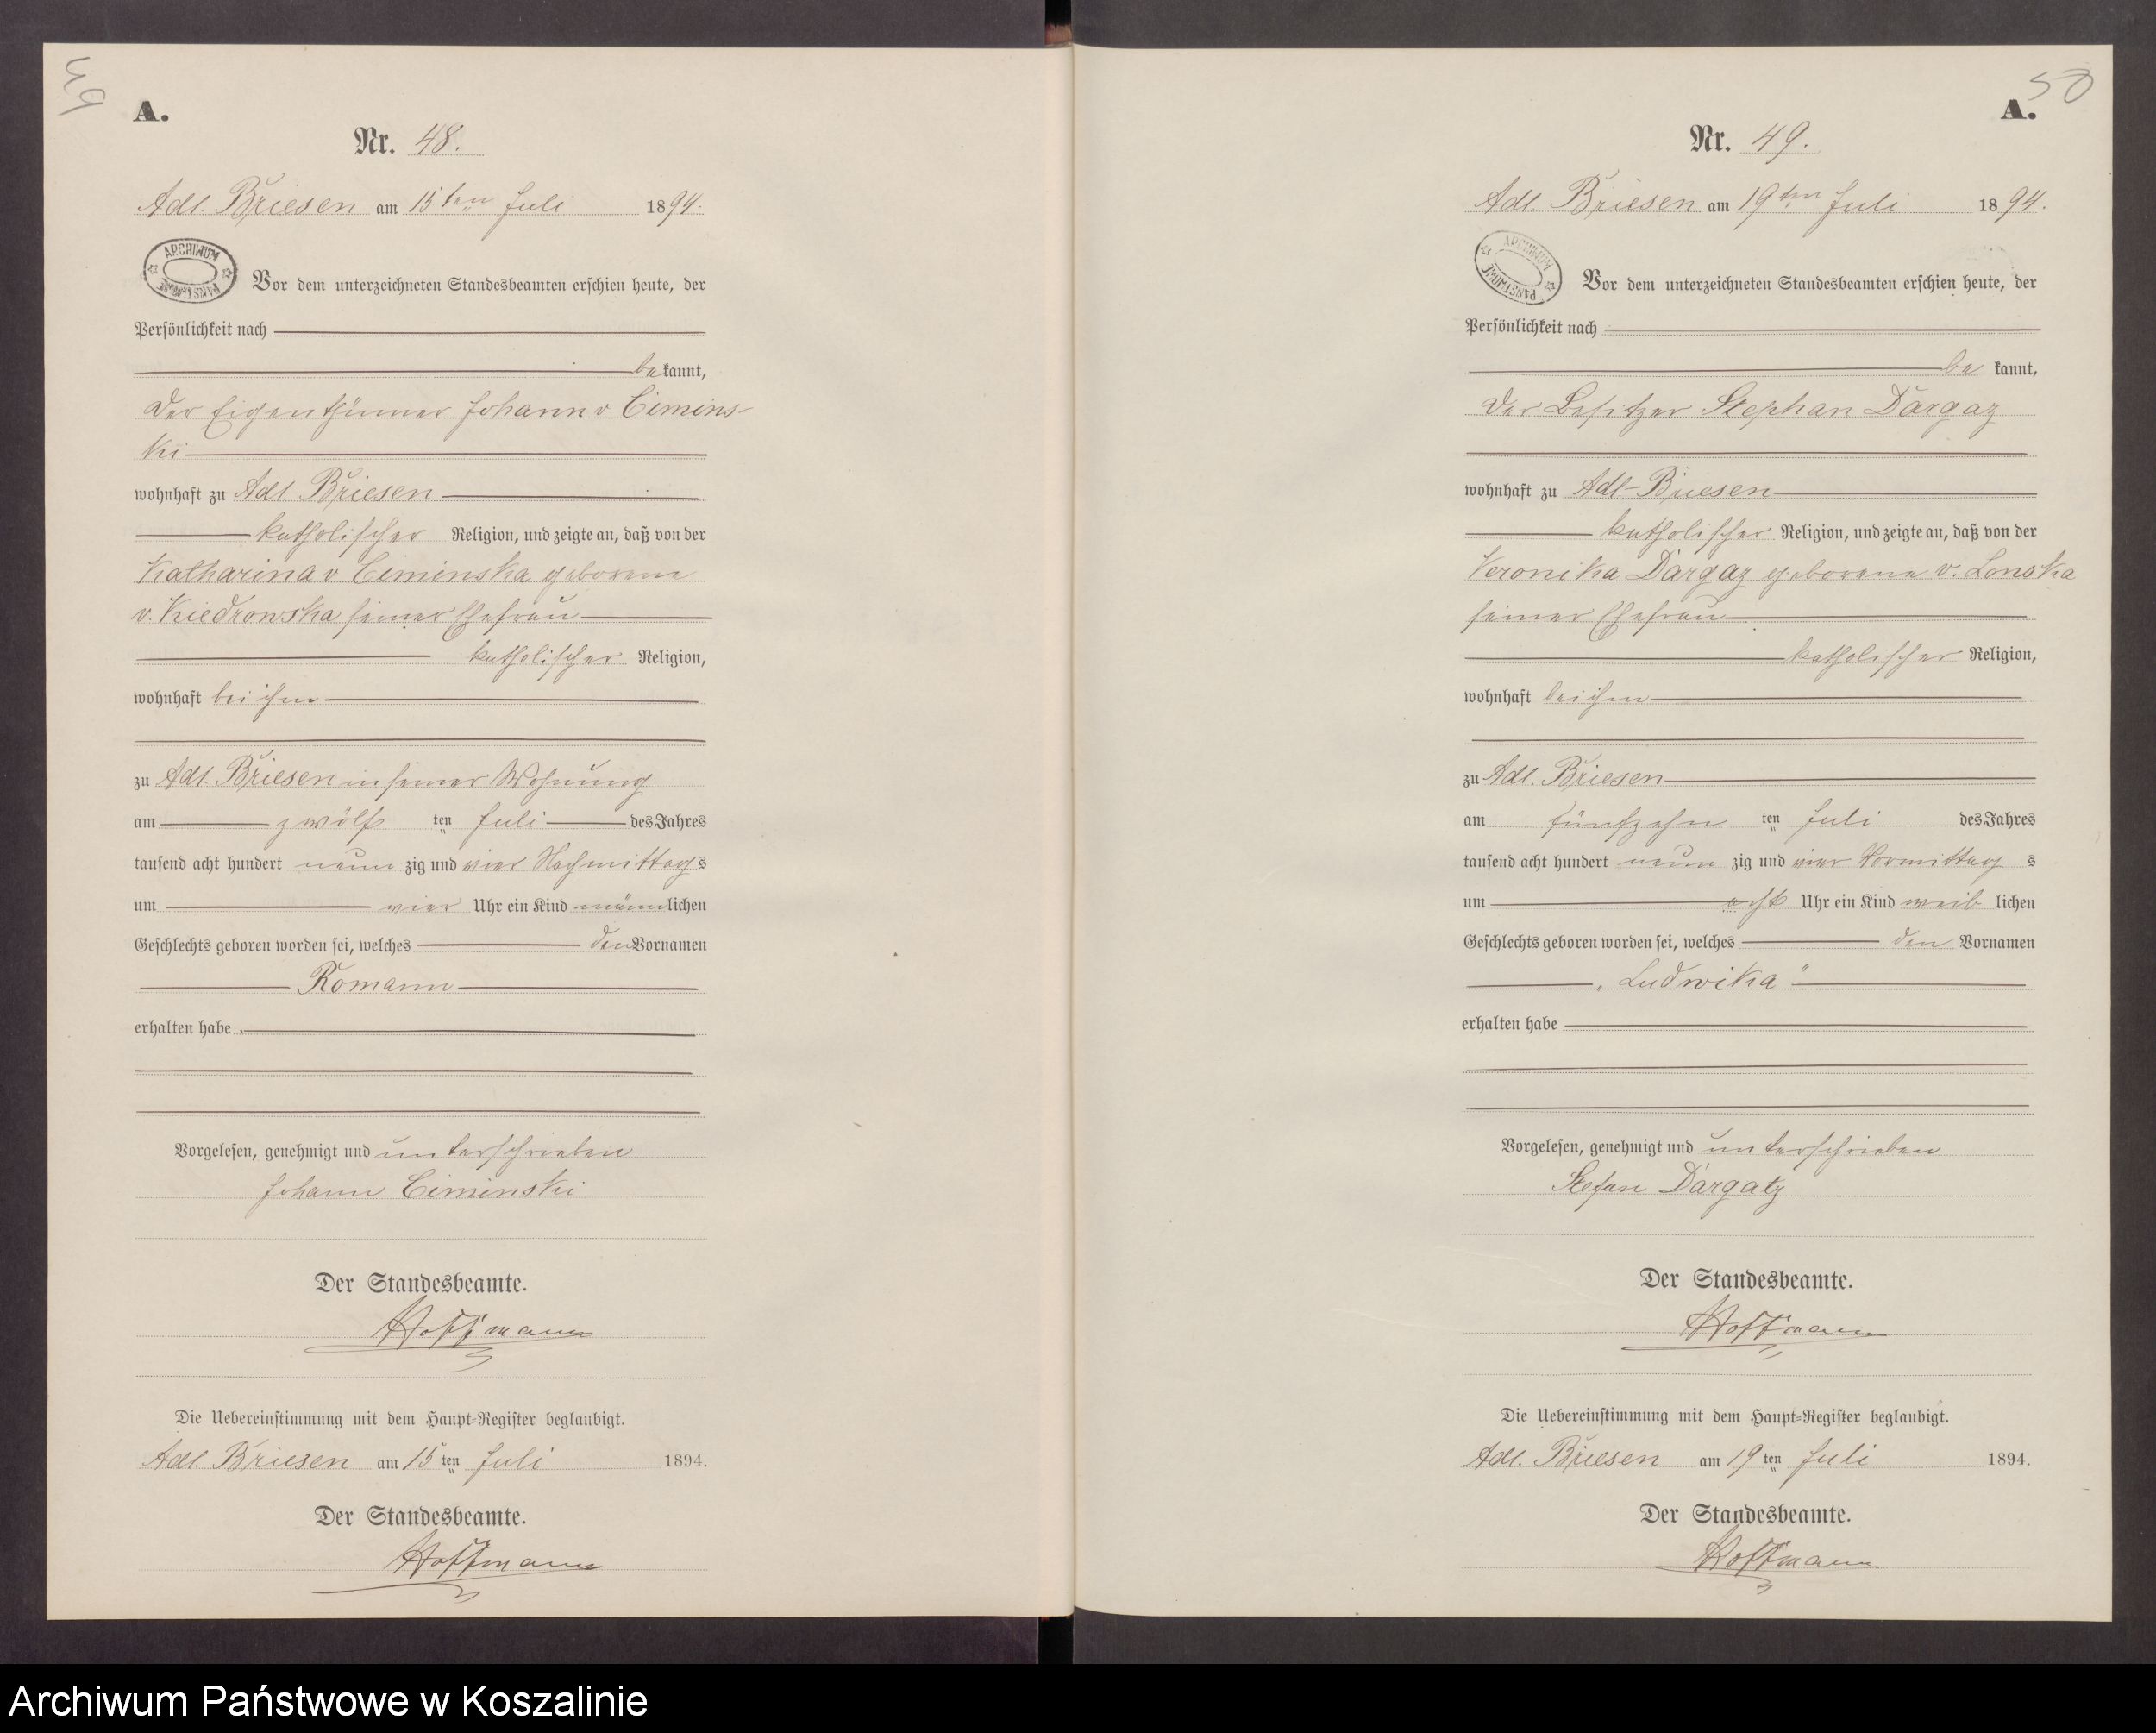 49
A.
Nr. 48.
Adl. Briesen am 15ten Juli 1894.
ARCHIWUM PAŃSTWOWE
Vor dem unterzeichneten Standesbeamten erschien heute, der
Persönlichkeit nach
bekannt,
der Eigenthümer Johann v Cimins-
ki
wohnhaft zu Adl Briesen
katholischer Religion, und zeigte an, daß von der
Katharina v Ciminska geborene
v. Kiedrowska seiner Ehefrau
katholischer Religion,
wohnhaft bei ihm
zu Adl. Briesen in seiner Wohnung
am zwölf ten Juli des Jahres
tausend acht hundert neun zig und vier Nachmittags
um vier Uhr ein Kind männlichen
Geschlechts geboren worden sei, welches den Vornamen
Romann
erhalten habe.
Vorgelesen, genehmigt und unterschrieben
Johann Ciminski
Der Standesbeamte.
Hoffmann
Die Uebereinstimmung mit dem Haupt-Register beglaubigt.
Adl. Briesen am 15 ten Juli 1894.
Der Standesbeamte.
Hoffmann
50
A.
Nr. 49.
Adl. Briesen am 19ten Juli 1894.
ARCHIWUM PAŃSTWOWE
Vor dem unterzeichneten Standesbeamten erschien heute, der
Persönlichkeit nach
be kannt,
der Besitzer Stephan Dargaz
wohnhaft zu Adl-Briesen
katholischer Religion, und zeigte an, daß von der
Veronika Dargaz geborene v. Lonska
seiner Ehefrau
katholischer Religion,
wohnhaft bei ihm
zu Adl. Briesen
am fünfzehn ten Juli des Jahres
tausend acht hundert neun zig und vier Vormittag s
um acht Uhr ein Kind weib lichen
Geschlechts geboren worden sei, welches den Vornamen
„Ludwika"
erhalten habe
Vorgelesen, genehmigt und unterschrieben
Stefan Dargatz
Der Standesbeamte.
Hoffmann
Die Uebereinstimmung mit dem Haupt-Register beglaubigt.
Adl. Briesen am 19 ten Juli 1894.
Der Standesbeamte.
Hoffmann
Archiwum Państwowe w Koszalinie